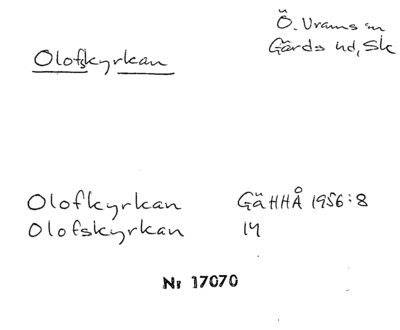 Ö. Vrams sn
Gärds hd, Sk
Olofskyrkan
Olofkyrkan GäHHÅ 1956:8
Olofskyrkan 14
Nr 17070